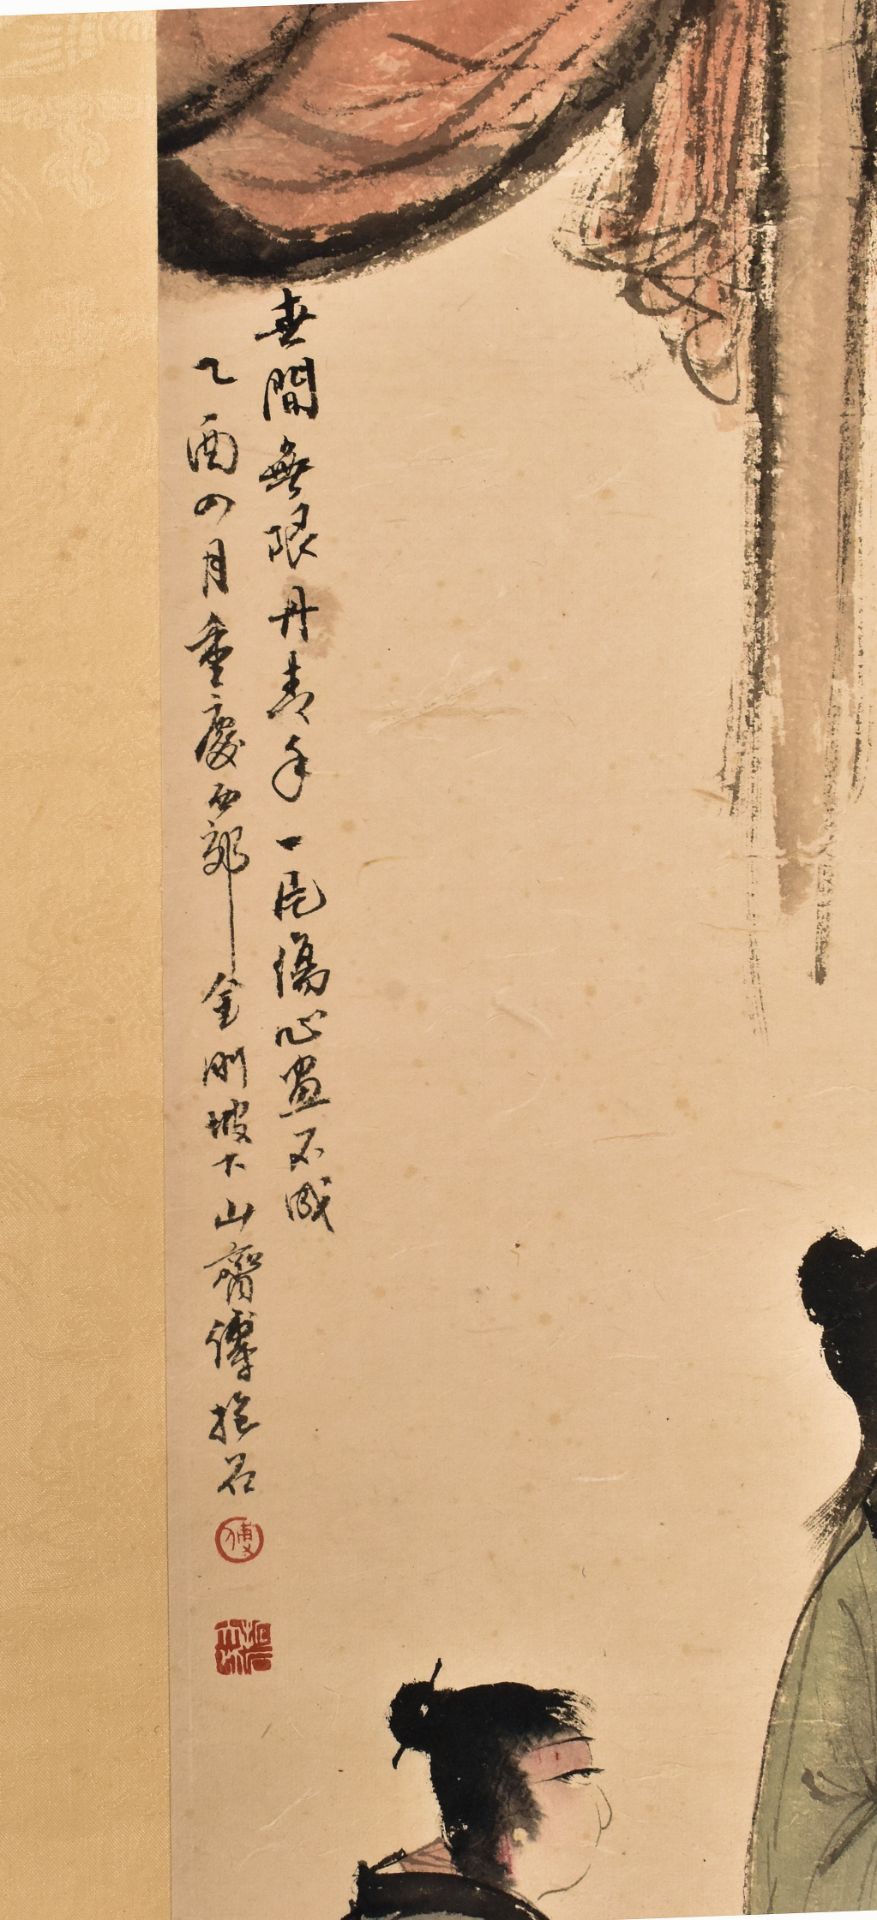 世間無限丹青手一片傷心畫不成
乙酉四月重慶西郊金剛坡下山齋傅抱石
傅